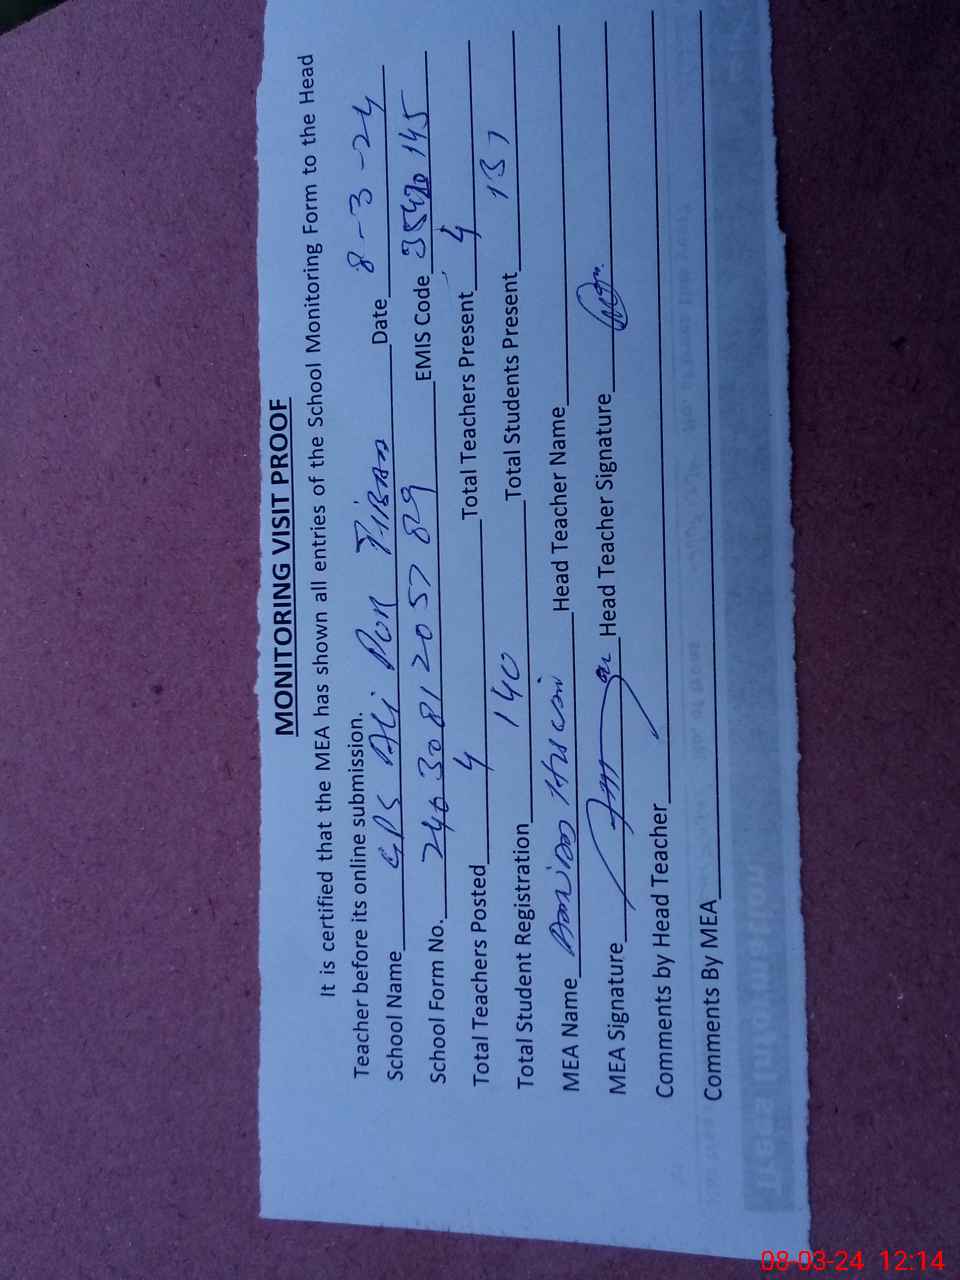 MONITORING VISIT PROOF
It is certified that the MEA has shown all entries of the School Monitoring Form to the Head
Teacher before its online submission.
School Name GPS Ali Pur Date 8-3-24
School Form No. 2463081205789 EMIS Code 35420145
Total Teachers Posted 4 Total Teachers Present 4
Total Student Registration 140 Total Students Present 137
MEA Name Head Teacher Name
MEA Signature Head Teacher Signature
Comments by Head Teacher
Comments By MEA
08-03-24 12:14